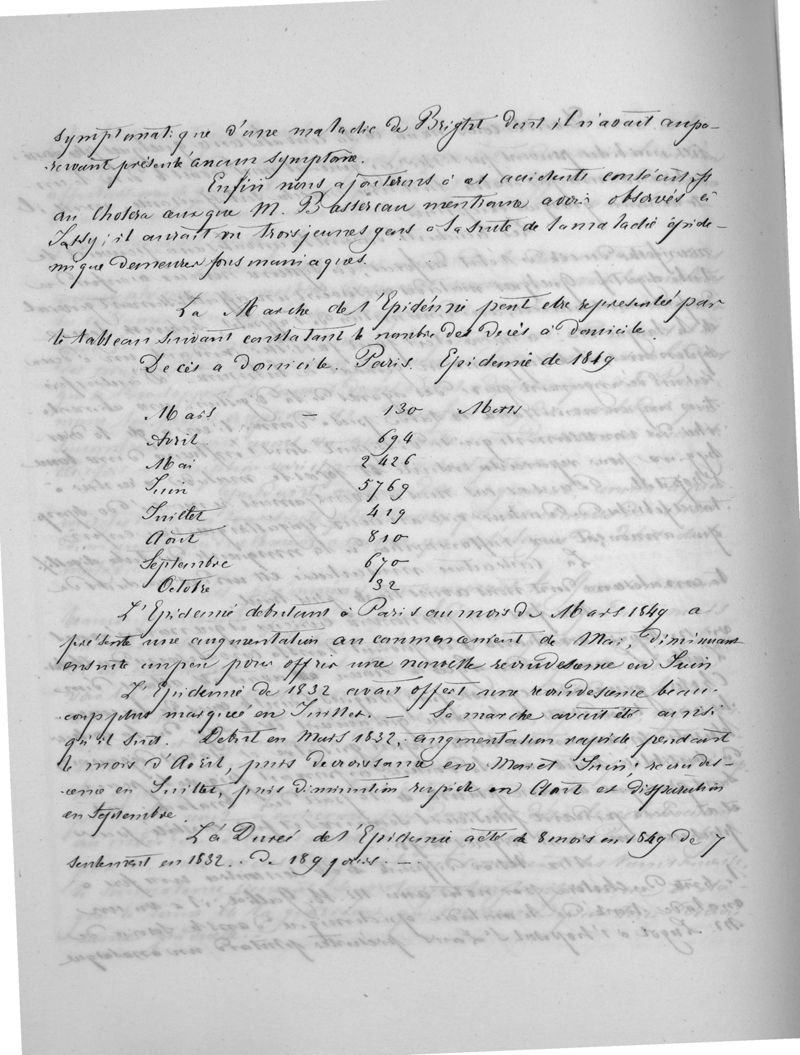 symptomatique d'une maladie de Bright dont il n'avait aupa-
ravant présenté aucun symptome.
Enfin nous ajouterons à ces accidents consécutifs
au Cholera ceux que M. Bassereau mentionne avoir observés à
Issy; il aurait vu trois jeunes gens à la suite de la maladie épide-
mique demeurer fous maniaques.
La Marche de l'Epidémie peut etre representée par
le tableau suivant constatant le nombre des Decés à domicile.
Decés a domicile. Paris. Epidemie de 1849
Mars — 130 Morts
Avril 694
Mai 2426
Juin 5769
Juillet 419
Août 810
Septembre 670
Octobre 32
L'Epidemie debutant à Paris au mois de Mars 1849 a
présenté une augmentation au commencement de Mai, diminuant
ensuite un peu pour offrir une nouvelle recrudescence en Juin
L'Epidemie de 1832 avait offert une recrudescence beau-
coup plus marquée en Juillet. — Sa marche avait été ainsi
qu'il suit. Debut en Mars 1832, augmentation rapide pendant
le mois d'Avril, puis decroissance en Mai et Juin; recrudes-
cence en Juillet, puis diminution rapide en Août et disparution
en Septembre.
La Durée de l'Epidemie a été de 8 mois en 1849 de 7
seulement en 1832. de 189 jours. —